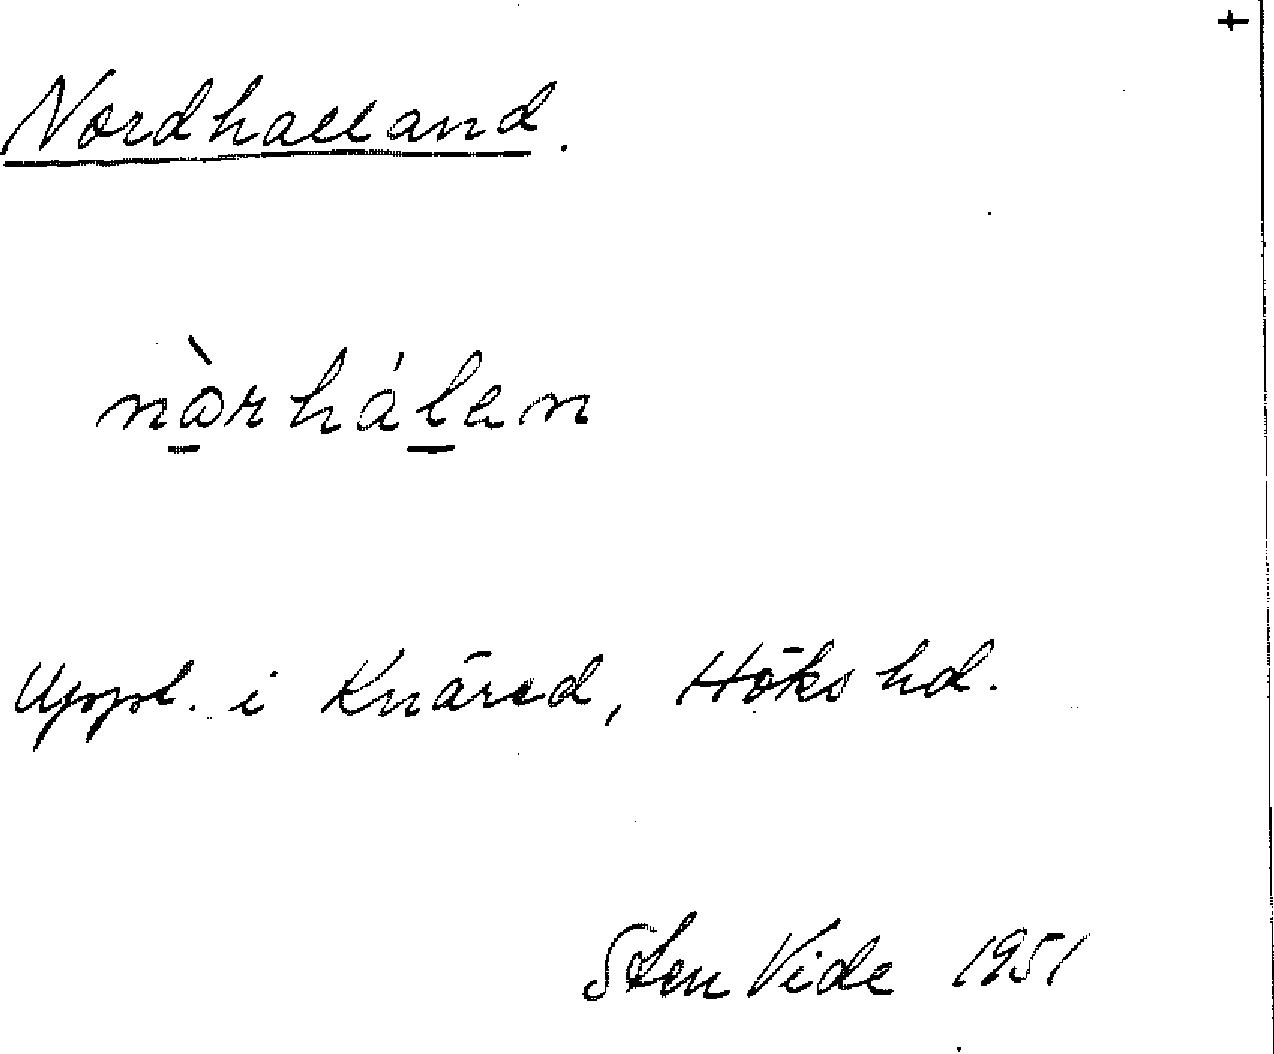 +
Nordhalland.
nàrhálen
Uppt. i Knäred, Höks hd.
Sten Vide 1951